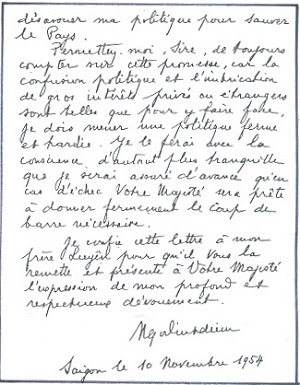 désavouer ma politique pour sauver
le Pays.
Permettez-moi, Sire, de toujours
compter sur cette promesse, car la
confusion politique et l'imbrication
de gros intérêts privés ou étrangers
sont telles que pour y faire face,
je dois mener une politique ferme
et hardie. Je le ferai avec la
conscience d'autant plus tranquille
que je serai assuré d'avance qu'en
cas d'échec Votre Majesté sera prête
à donner fermement le coup de
barre nécessaire.
Je confie cette lettre à mon
frère Luyện pour qu'il vous la
remette et présente à Votre Majesté
l'expression de mon profond et
respectueux dévouement.
Ngodinhdiem
Saigon le 10 Novembre 1954